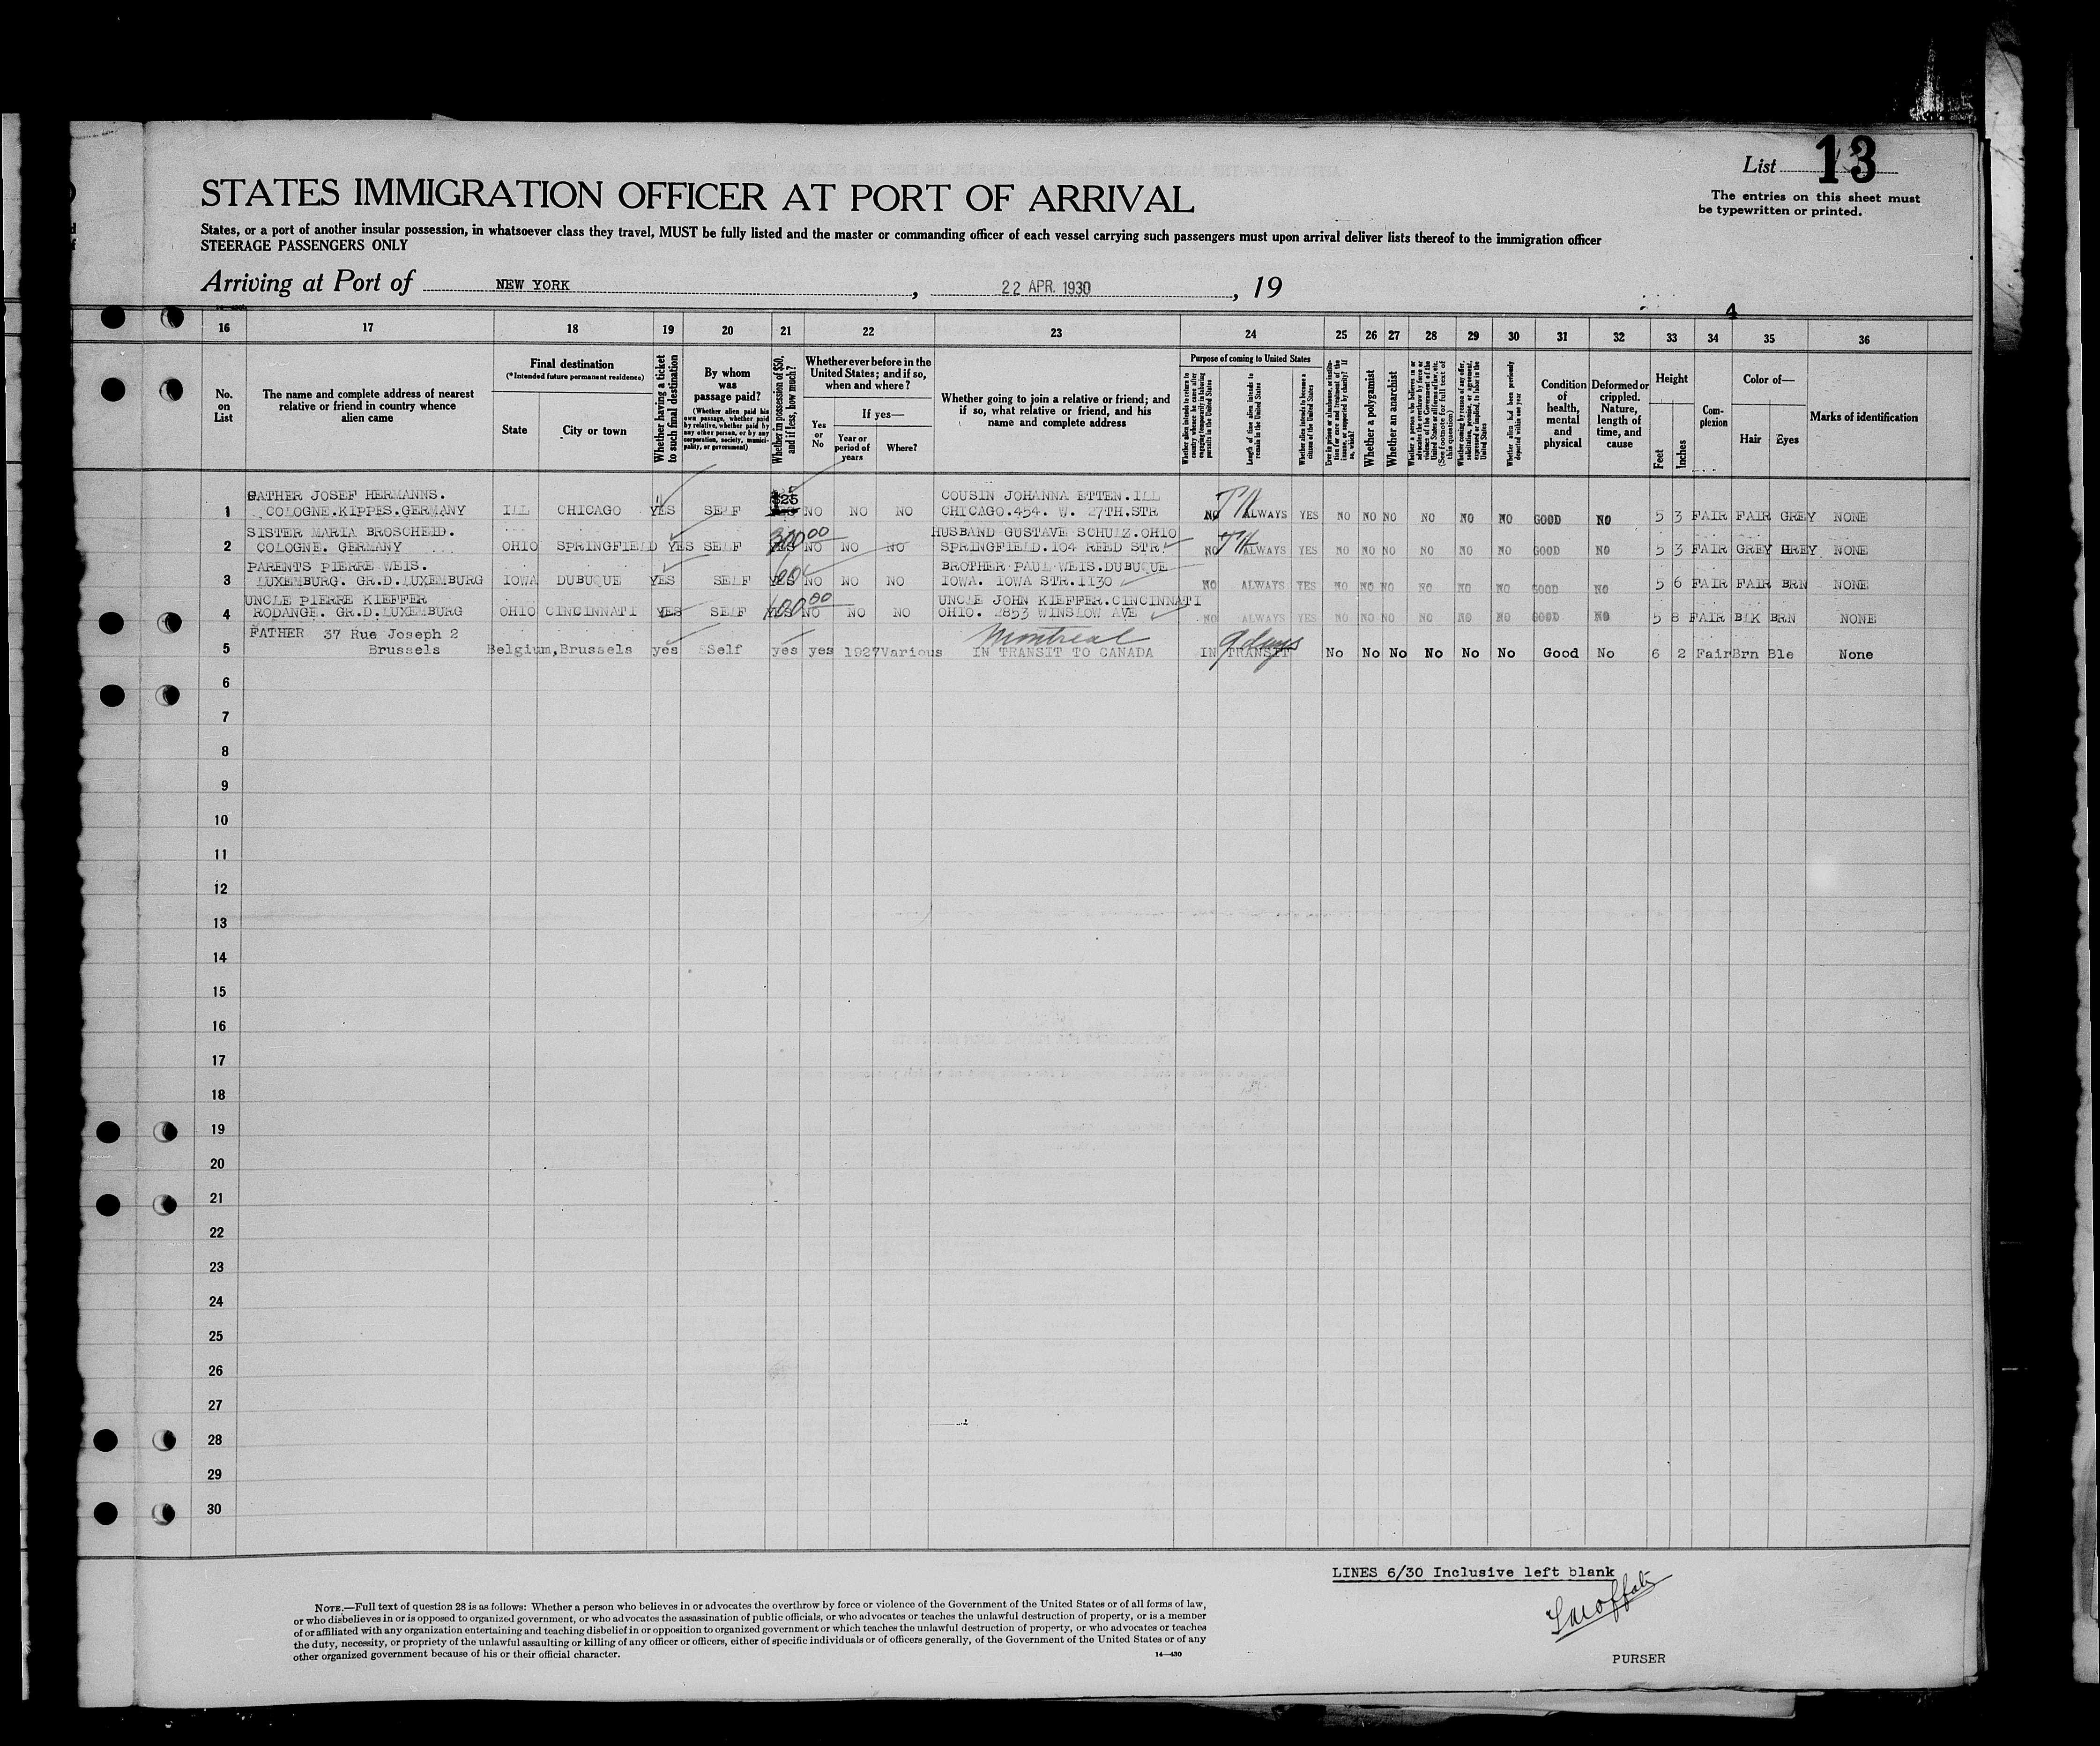 List 13
The entries on this sheet must
be typewritten or printed.
STATES IMMIGRATION OFFICER AT PORT OF ARRIVAL
States, or a port of another insular possession, in whatsoever class they travel, MUST be fully listed and the master or commanding officer of each vessel carrying such passengers must upon arrival deliver lists thereof to the immigration officer
STEERAGE PASSENGERS ONLY
Arriving at Port of NEW YORK, 22 APR. 1930, 19
4
16 17 18 19 20 21 22 23 24 25 26 27 28 29 30 31 32 33 34 35 36
No. on List
The name and complete address of nearest relative or friend in country whence alien came
Final destination
(*Intended future permanent residence)
State
City or town
Whether having a ticket to such final destination
By whom was passage paid?
(Whether alien paid his own passage, whether paid by relative, whether paid by any other person, or by any corporation, society, municipality, or government)
Whether in possession of $50, and if less, how much?
Whether ever before in the United States; and if so, when and where?
Yes or No
If yes—
Year or period of years
Where?
Whether going to join a relative or friend; and if so, what relative or friend, and his name and complete address
Purpose of coming to United States
Whether alien intends to return to country whence he came after engaging temporarily in laboring pursuits in the United States
Length of time alien intends to remain in the United States
Whether alien intends to become a citizen of the United States
Ever in prison or almshouse, or institution for care and treatment of the insane, or supported by charity? If so, which?
Whether a polygamist
Whether an anarchist
Whether a person who believes in or advocates the overthrow by force or violence of the Government of the United States or all forms of law, etc. (See footnote for full text of this question)
Whether coming by reason of any offer, solicitation, promise, or agreement, expressed or implied, to labor in the United States
Whether alien had been previously deported within one year
Condition of health, mental and physical
Deformed or crippled. Nature, length of time, and cause
Height
Feet
Inches
Complexion
Color of—
Hair
Eyes
Marks of identification
FATHER JOSEF HERMANNS. $25 COUSIN JOHANNA ETTEN.ILL
1 COLOGNE.KIPPES.GERMANY ILL CHICAGO YES SELF NO NO NO CHICAGO.454. W. 27TH.STR NO ALWAYS YES NO NO NO NO NO NO GOOD NO 5 3 FAIR FAIR GREY NONE
SISTER MARIA BROSCHEID. 300 00 HUSBAND GUSTAVE SCHULZ.OHIO
2 COLOGNE. GERMANY OHIO SPRINGFIELD YES SELF YES NO NO NO SPRINGFIELD.104 REED STR. NO ALWAYS YES NO NO NO NO NO NO GOOD NO 5 3 FAIR GREY GREY NONE
PARENTS PIERRE WEIS. BROTHER PAUL WEIS.DUBUQUE
3 LUXEMBURG. GR.D.LUXEMBURG IOWA DUBUQUE YES SELF YES NO NO NO IOWA. IOWA STR.1130 NO ALWAYS YES NO NO NO NO NO NO GOOD NO 5 6 FAIR FAIR BRN NONE
UNCLE PIERRE KIEFFER 100 00 UNCLE JOHN KIEFFER.CINCINNATI
4 RODANGE. GR.D.LUXEMBURG OHIO CINCINNATI YES SELF YES NO NO NO OHIO. 2853 WINSLOW AVE NO ALWAYS YES NO NO NO NO NO NO GOOD NO 5 8 FAIR BLK BRN NONE
FATHER 37 Rue Joseph 2 Montreal 9 days
5 Brussels Belgium,Brussels yes Self yes yes 1927 Various IN TRANSIT TO CANADA IN TRANSIT No No No No No No Good No 6 2 Fair Brn Ble None
6
7
8
9
10
11
12
13
14
15
16
17
18
19
20
21
22
23
24
25
26
27
28
29
30
LINES 6/30 Inclusive left blank
PURSER
NOTE.—Full text of question 28 is as follows: Whether a person who believes in or advocates the overthrow by force or violence of the Government of the United States or of all forms of law,
or who disbelieves in or is opposed to organized government, or who advocates the assassination of public officials, or who advocates or teaches the unlawful destruction of property, or is a member
of or affiliated with any organization entertaining and teaching disbelief in or opposition to organized government or which teaches the unlawful destruction of property, or who advocates or teaches
the duty, necessity, or propriety of the unlawful assaulting or killing of any officer or officers, either of specific individuals or of officers generally, of the Government of the United States or of any
other organized government because of his or their official character.
14—430